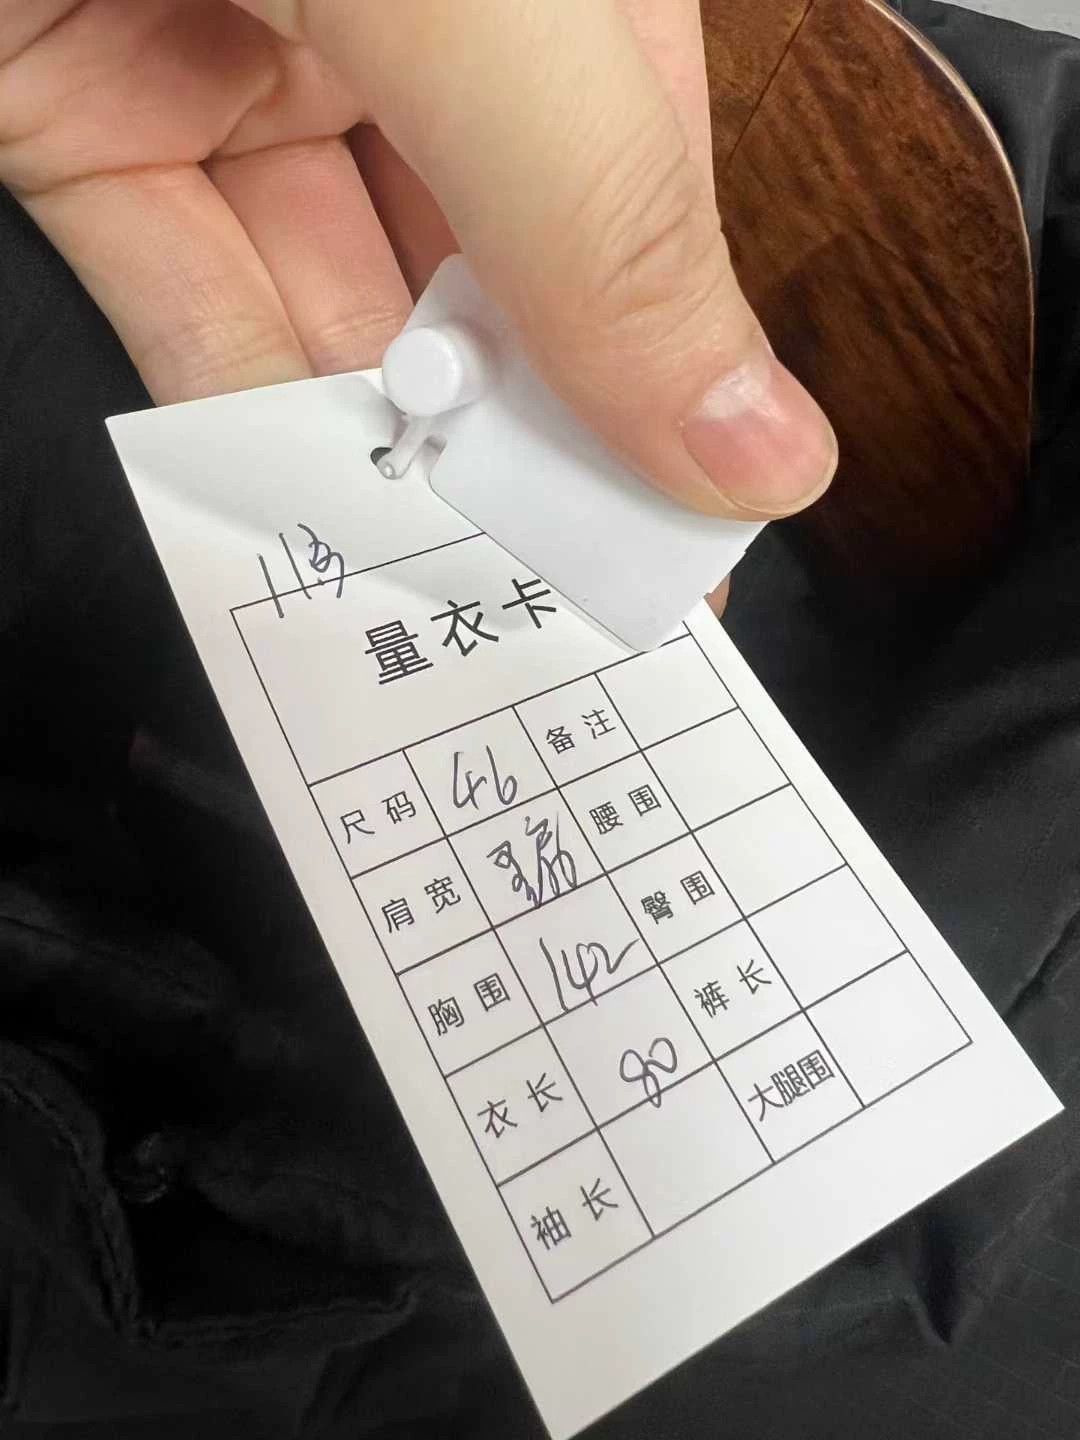 量衣卡
尺码 46 备注
肩宽 腰围
胸围 142 臀围
衣长 80 裤长
袖长 大腿围